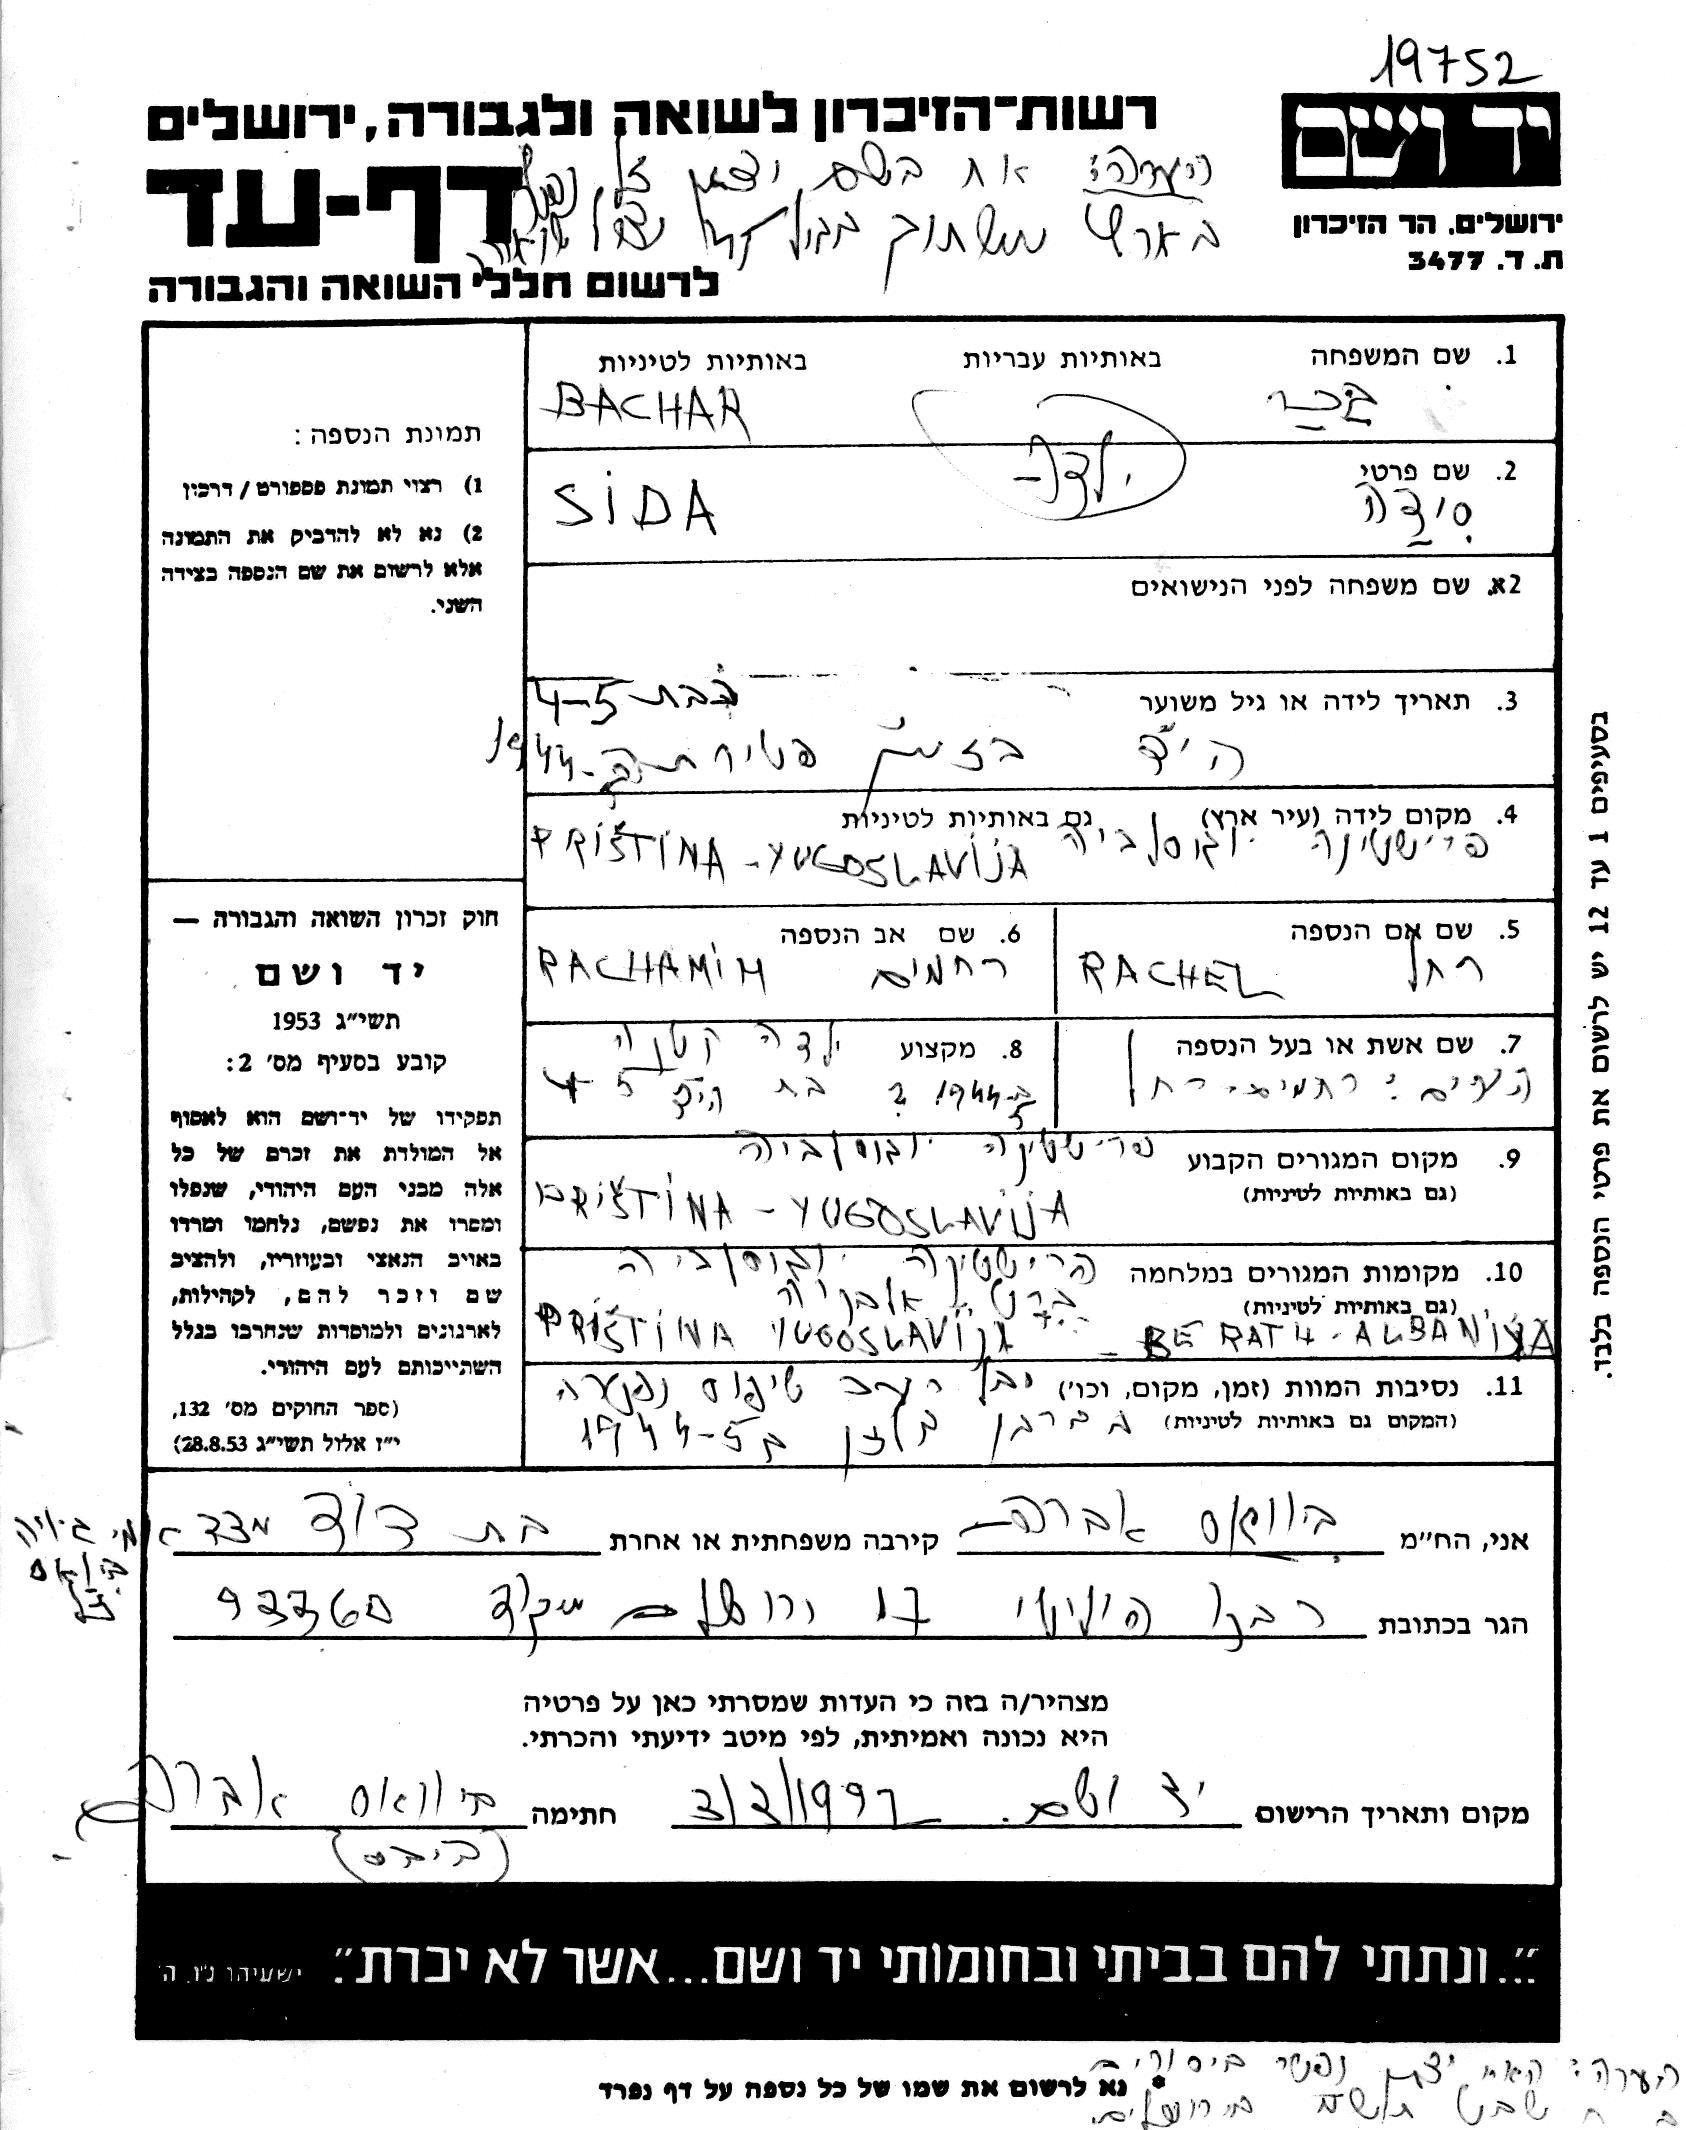 19752
יד ושם
ירושלים. הר הזיכרון
ת. ד. 3477
רשות-הזיכרון לשואה ולגבורה, ירושלים
דף-עד
לרשום חללי השואה והגבורה
הערה: אח בשם
1. שם המשפחה באותיות עבריות באותיות לטיניות
בכר BACHAR
ילדה
2. שם פרטי
סידה SIDA
2א. שם משפחה לפני הנישואים
3. תאריך לידה או גיל משוער כבת 4-5
הי"ד בזמן פטירתה ב-1944
4. מקום לידה (עיר ארץ) גם באותיות לטיניות
פרישטינה יוגוסלביה PRIŠTINA - YUGOSLAVIJA
5. שם אם הנספה
רחל RACHEL
6. שם אב הנספה
רחמים RACHAMIM
7. שם אשת או בעל הנספה
הורים: רחמים - רחל
8. מקצוע ילדה קטנה
ב-1944 ? בת הי"ד 4-5
9. מקום המגורים הקבוע פרישטינה יוגוסלביה
(גם באותיות לטיניות) PRIŠTINA - YUGOSLAVIJA
10. מקומות המגורים במלחמה פרישטינה יוגוסלביה
(גם באותיות לטיניות) ברט אלבניה
PRIŠTINA YUGOSLAVIJA - BERATH - ALBANIJA
11. נסיבות המוות (זמן, מקום, וכו') רעב טיפוס
(המקום גם באותיות לטיניות) בברגן בלזן ב 1944-5
תמונת הנספה:
1) רצוי תמונת פספורט / דרכון
2) נא לא להדביק את התמונה
אלא לרשום את שם הנספה בצידה
השני.
חוק זכרון השואה והגבורה —
יד ושם
תשי"ג 1953
קובע בסעיף מס' 2:
תפקידו של יד-ושם הוא לאסוף
אל המולדת את זכרם של כל
אלה מבני העם היהודי, שנפלו
ומסרו את נפשם, נלחמו ומרדו
באויב הנאצי ובעוזריו, ולהציב
שם וזכר להם, לקהילות,
לארגונים ולמוסדות שנחרבו בגלל
השתייכותם לעם היהודי.
(ספר החוקים מס' 132,
י"ז אלול תשי"ג 28.8.53)
בסעיפים 1 עד 12 יש לרשום את פרטי הנספה בלבד.
אני, הח"מ ביוואס אברהם קירבה משפחתית או אחרת בת דוד מצד אמי
הגר בכתובת 17 ירושלים מיקוד 93360
מצהיר/ה בזה כי העדות שמסרתי כאן על פרטיה
היא נכונה ואמיתית, לפי מיטב ידיעתי והכרתי.
מקום ותאריך הרישום יד ושם. 3/3/1997 חתימה ביוואס אברהם
"...ונתתי להם בביתי ובחומותי יד ושם...אשר לא יכרת". ישעיהו נ"ו, ה'
* נא לרשום את שמו של כל נספה על דף נפרד
הערה: האח נפטר
שבט בירושלים.